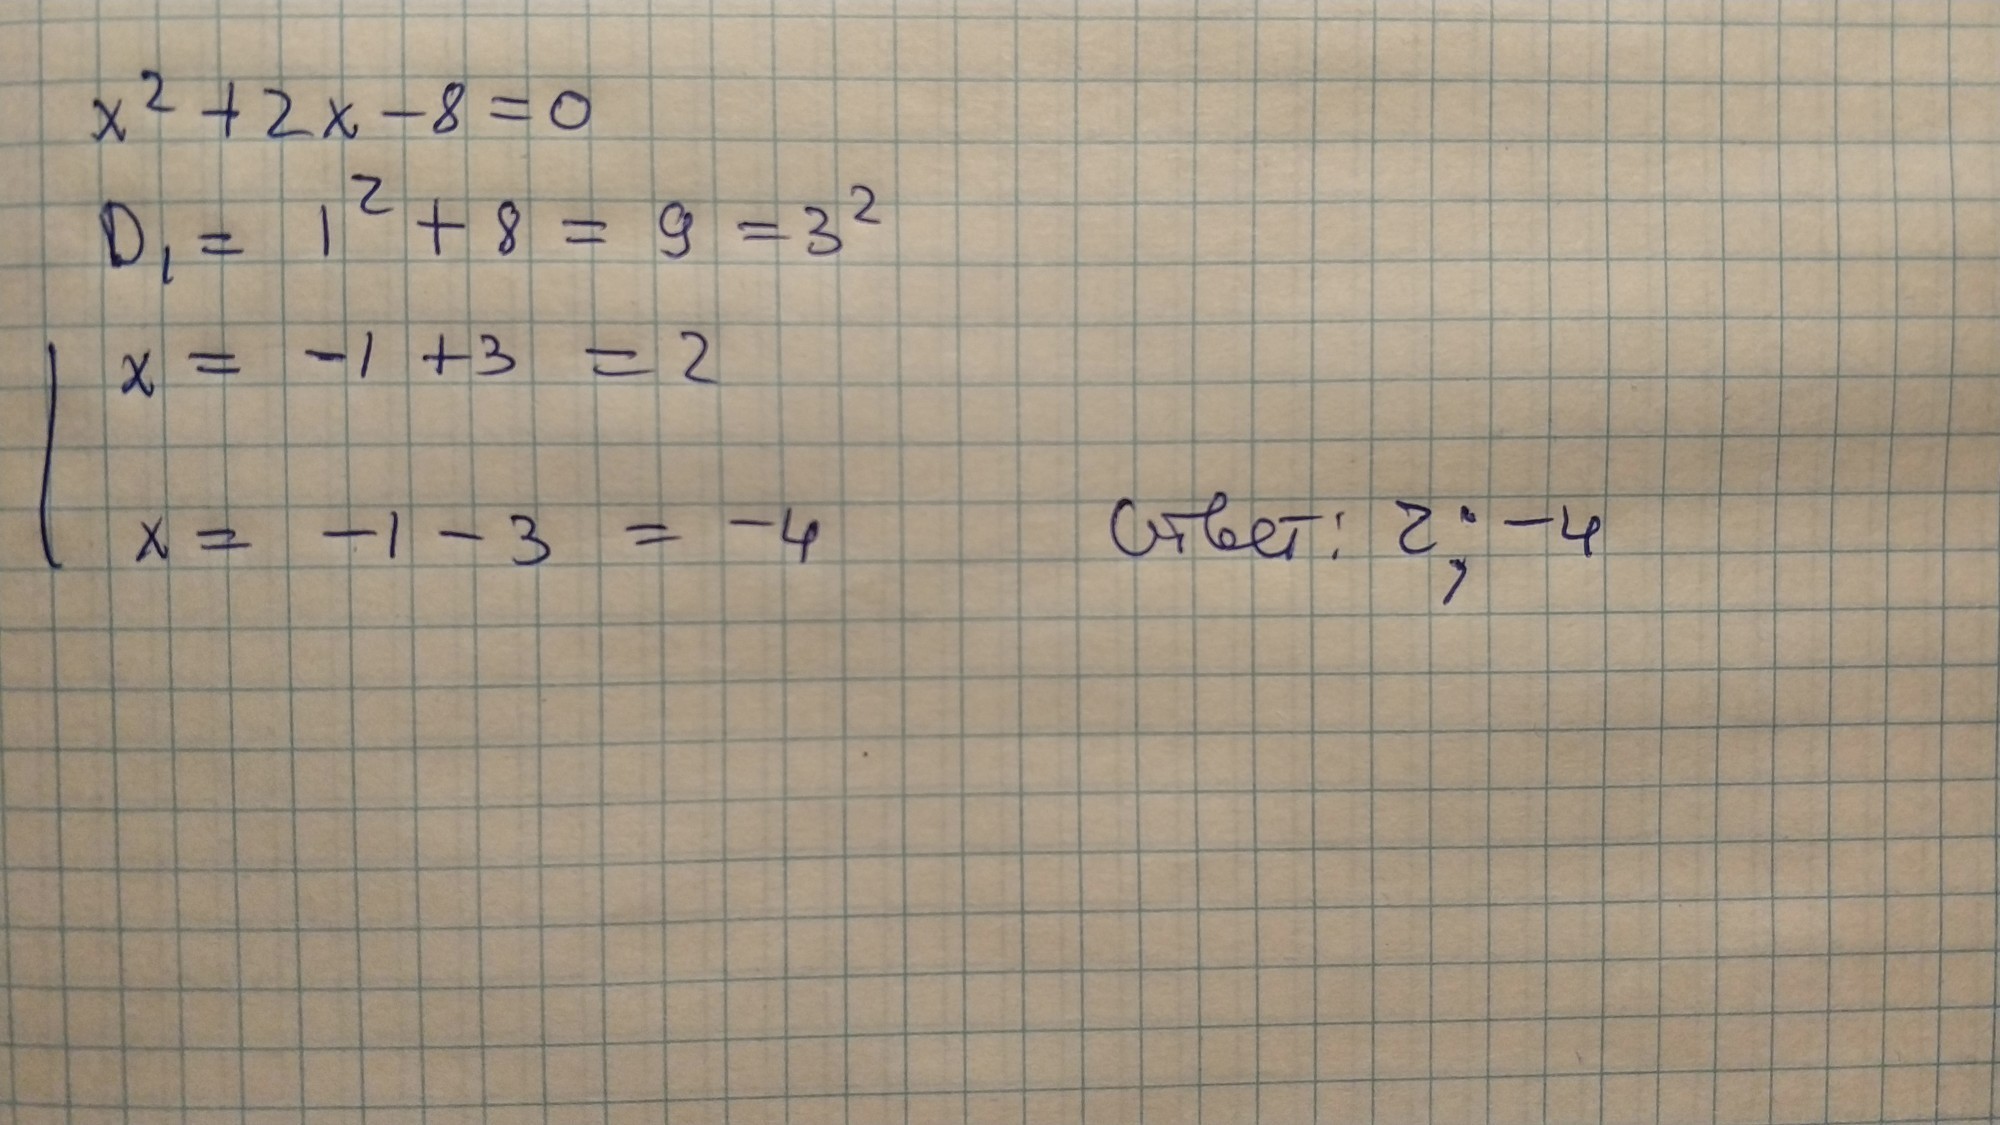 x² + 2x - 8 = 0
D₁ = 1² + 8 = 9 = 3²
x = -1 + 3 = 2
x = -1 - 3 = -4
Ответ: 2; -4